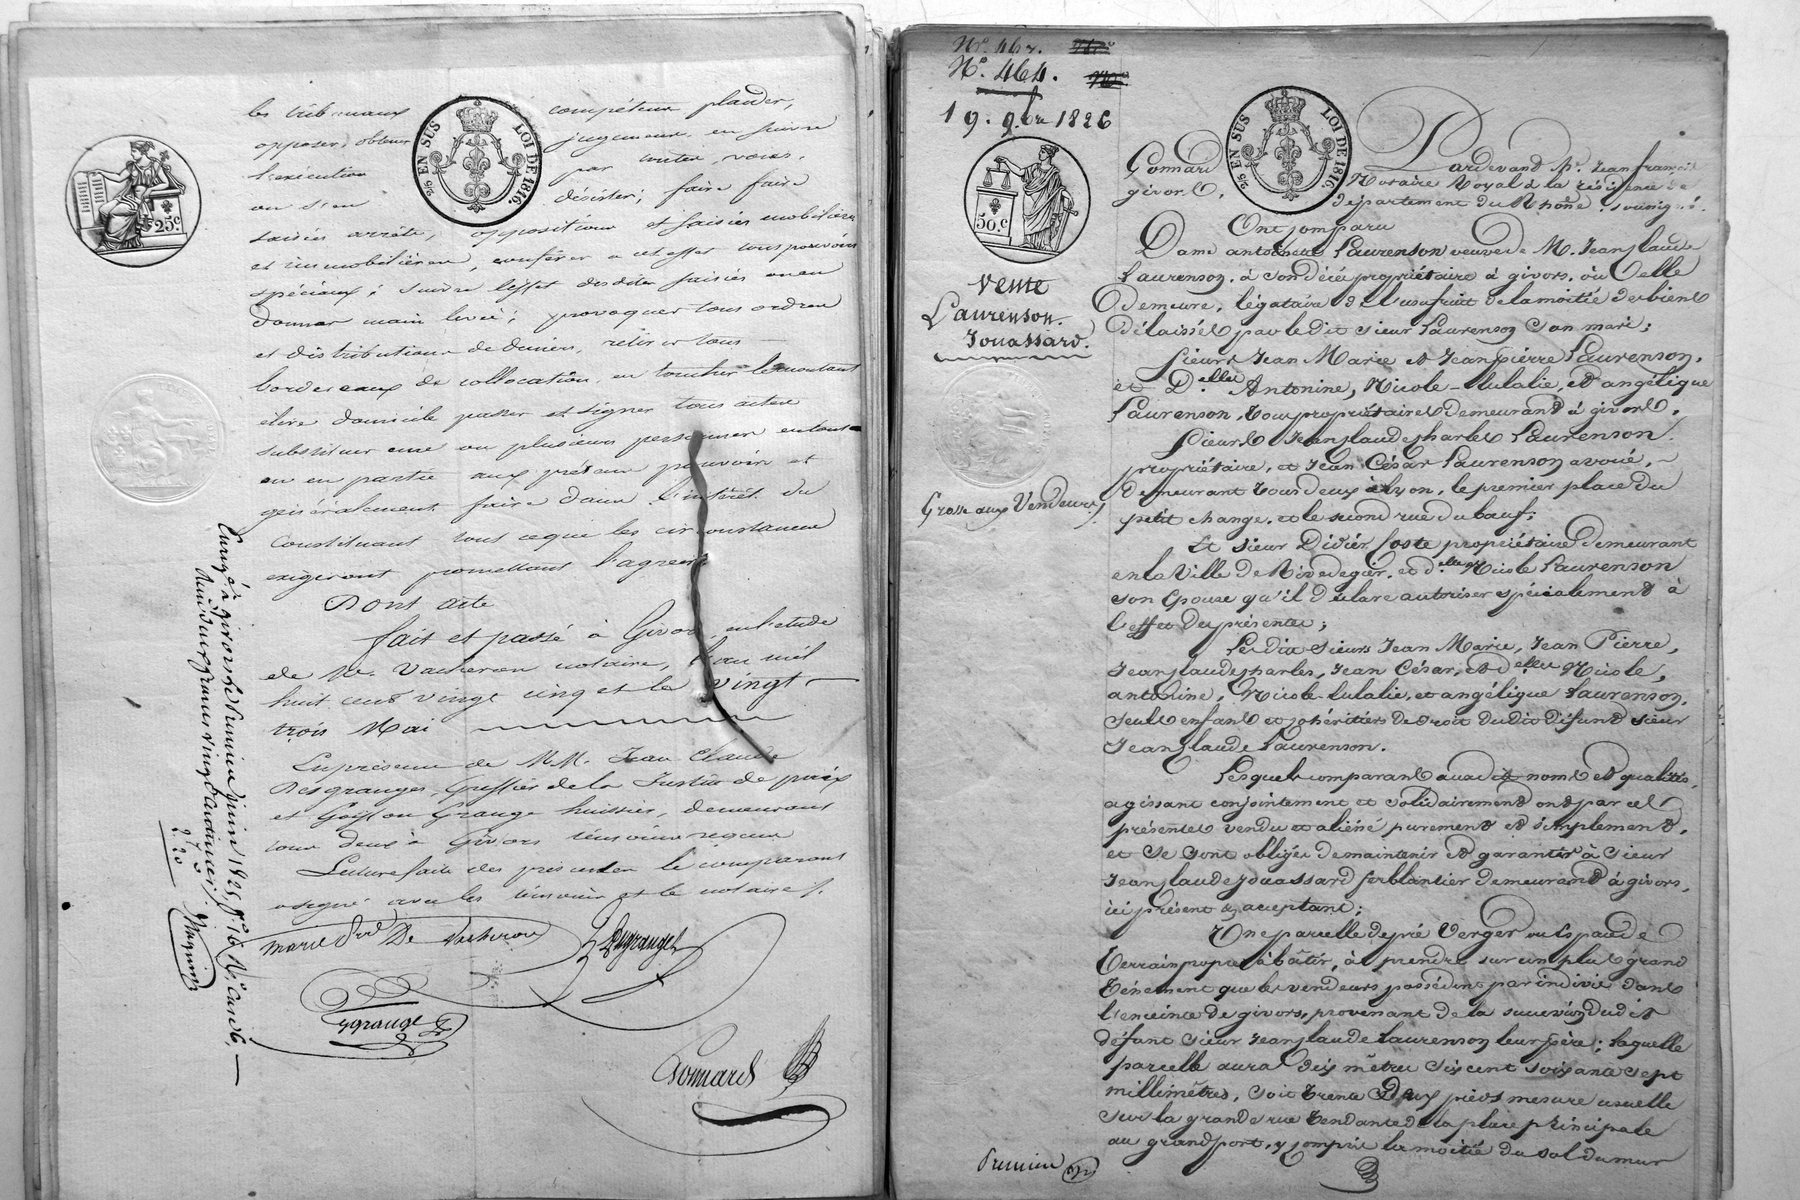 les tribunaux compétens plaider,
opposer, obtenir jugemens en suivre
l'exécution par toutes voies,
ou s'en désister; faire faire
saisies arrêts, oppositions et saisies mobilières
et immobilières, conférer à cet effet tous pouvoirs
spéciaux; suivre l'effet desdites saisies ou en
donner main levée; provoquer tous ordres
et distributions de deniers, retirer tous
bordereaux de collocation, en toucher le montant
élire domicile passer et signer tous actes
substituer une ou plusieurs personnes en tout
ou en partie aux présens pouvoirs et
généralement faire dans l'intérêt du
constituant tout ce que les circonstances
exigeront promettant l'agréer
Dont acte
fait et passé à Givors, en l'étude
de Me. Vacheron notaire, l'an mil
huit cent vingt cinq et le vingt
trois Mai
En présence de M.M. Jean Claude
Desgranges, Greffier de la Justice de paix
et Grange huissier, demeurant
tous deux à Givors témoins requis
Lecture faite des présentes le comparant
a signé avec les témoins et le notaire /.
Vacheron
Desgranges
Grange
Gonnard
25 EN SUS LOI DE 1816.
25 c.
Enregé à givors le premier juin 1825, fo. 16 Vo. case 6,
Reçu deux francs vingt centimes /.
2 20
Magnin
No. 464.
19. 9bre 1826
50 c.
25 EN SUS LOI DE 1816.
Vente
Laurenson.
Jouassard.
Grosse aux Vendeurs /.
Pardevant Me. Jean françois
Gonnard Notaire Royal à la résidence de
givors, département du Rhône, soussigné.
Ont Comparu
Dame antoinette Laurenson veuve de M. Jean Claude
Laurenson, à son décès propriétaire à givors, où Celle
demeure, légataire de l'usufruit de la moitié des biens
délaissés par le dit sieur Laurenson son mari;
Sieurs Jean Marie et Jean Pierre Laurenson.
et Delles Antonine, Nicole-Eulalie, et angélique
Laurenson, tous propriétaires demeurant à givors,
Sieurs Jean Claude Charles Laurenson.
propriétaire, et Jean César Laurenson avoué,
demeurant tous deux à Lyon, le premier place du
petit change, et le second rue du bœuf;
Et sieur Didier Coste propriétaire demeurant
en la Ville de Rivedegier, et delle Nicole Laurenson
son Epouse qu'il déclare autoriser spécialement à
l'effet des présentes;
Lesdits sieurs Jean Marie, Jean Pierre,
Jean Claude Charles, Jean César, et delles Nicole,
antonine, Nicole-Eulalie, et angélique Laurenson,
seuls enfans et cohéritiers de droit dudit défunt sieur
Jean Claude Laurenson.
Lesquels comparans auxdits noms et qualités,
agissant conjointement et solidairement ont par ces
présentes vendu et aliéné purement et simplement,
et se sont obligés de maintenir et garantir à sieur
Jean Claude Jouassard ferblantier demeurant à givors,
ici présent & acceptant;
Une parcelle de pré Verger ou Espace de
terrain propre à bâtir, à prendre sur un plus grand
ténement que les vendeurs possèdent par indivis dans
l'enceinte de givors, provenant de la succession dudit
défunt sieur Jean Claude Laurenson leur père; laquelle
parcelle aura dix mètres six cent soixante sept
millimètres, soit trente Deux pieds mesure usuelle
sur la grande rue tendante de la place principale
au grand port, y compris la moitié du sol du mur
Premier